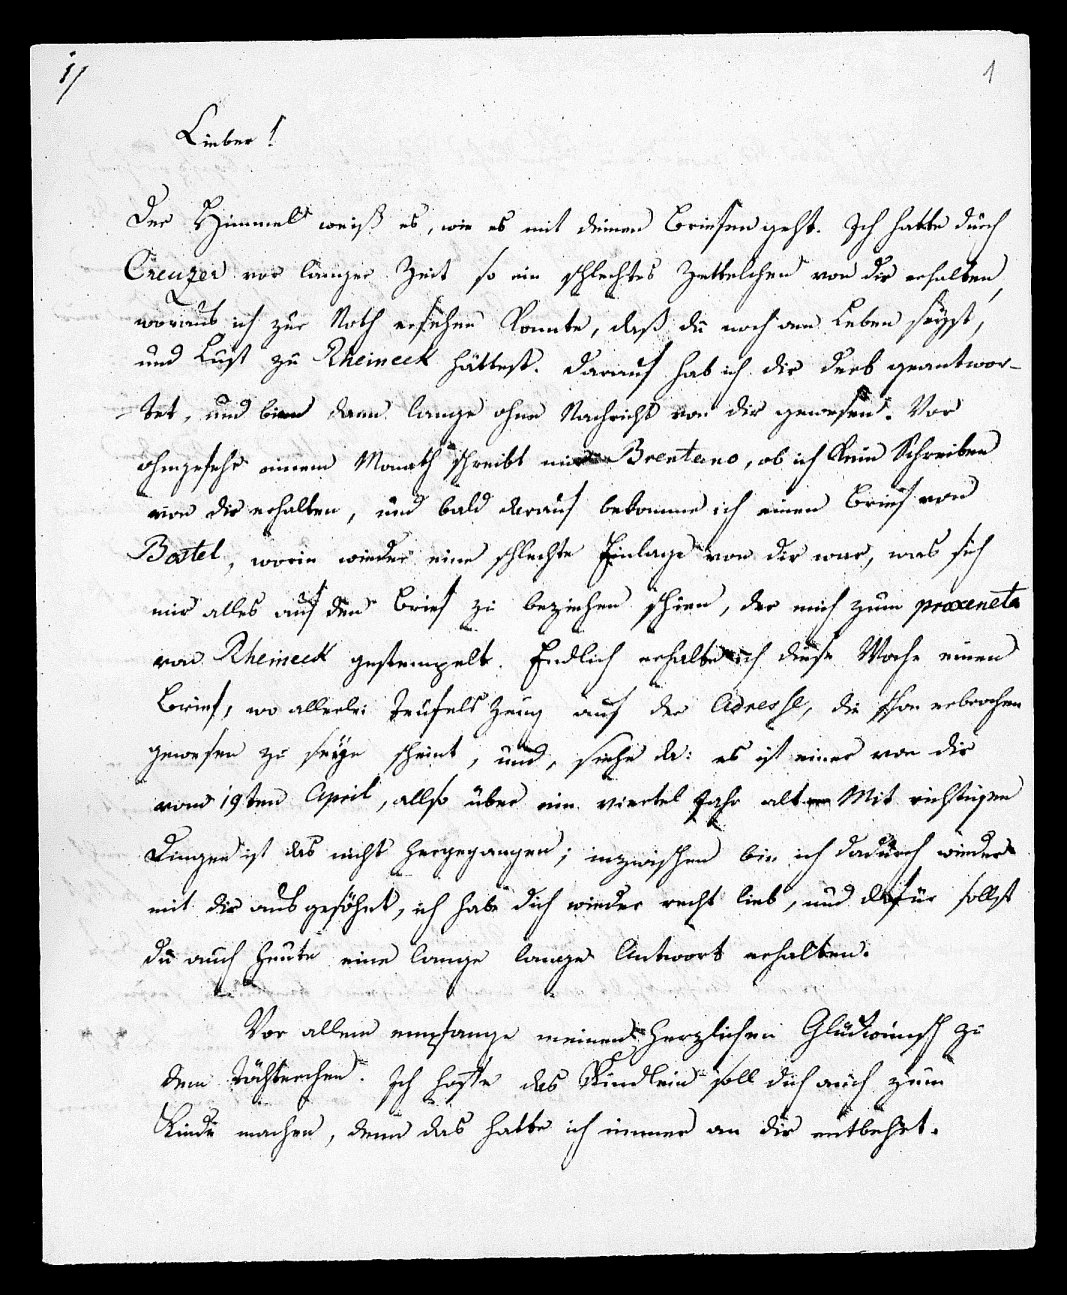 1/
1
Lieber!
Der Himmel weiß es, wie es mit deinen Briefen geht. Ich hatte durch
Creuzer vor langer Zeit so ein schlechtes Zettelchen von dir erhalten,
woraus ich zur Noth ersehen konnte, daß du noch am Leben seyst,
und Lust zu Rheineck hättest. Darauf hab ich dir derb geantwor-
tet, und bin dann lange ohne Nachricht von dir gewesen. Vor
ohngefehr einem Monath schreibt mir Brentano, ob ich kein Schreiben
von dir erhalten, und bald darauf bekomme ich einen Brief von
Bostel, worin wieder eine schlechte Einlage von dir war, was sich
mir alles auf den Brief zu beziehen schien, der mich zum proxeneta
von Rheineck gestempelt. Endlich erhalte ich diese Woche einen
Brief, wo allerlei Teufels Zeug auf der Adresse, die schon erbrochen
gewesen zu seyn scheint, und, siehe da: es ist einer von dir
vom 19ten April, allso über ein viertel Jahr alt. Mit richtigen
Dingen ist das nicht hergegangen; inzwischen bin ich dadurch wieder
mit dir ausgesöhnt, ich habe dich wieder recht lieb, und dafür sollst
du auch heute eine lange lange Antwort erhalten.
Vor allem empfange meinen herzlichen Glückwunsch zu
dem Töchterchen. Ich hoffe das Kindlein soll dich auch zum
Kinde machen, denn das hatte ich immer an dir entbehrt.